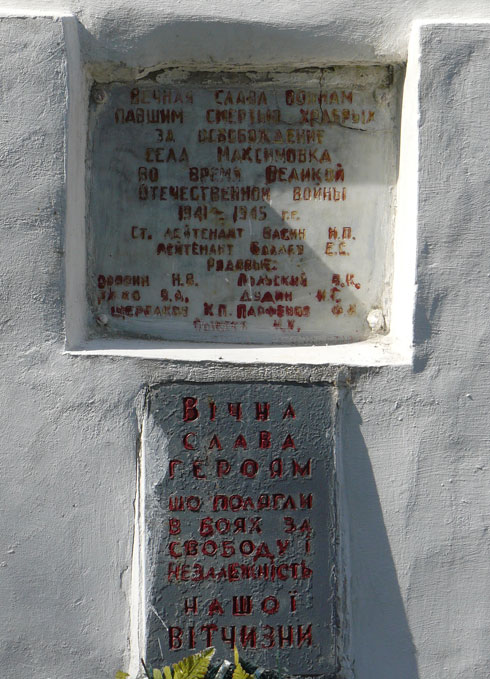 ВЕЧНАЯ СЛАВА ВОИНАМ
ПАВШИМ СМЕРТЬЮ ХРАБРЫХ
ЗА ОСВОБОЖДЕНИЕ
СЕЛА МАКСИМОВКА
ВО ВРЕМЯ ВЕЛИКОЙ
ОТЕЧЕСТВЕННОЙ ВОЙНЫ
1941-1945 г.г.
СТ. ЛЕЙТЕНАНТ ВАСИН И.П.
ЛЕЙТЕНАНТ Е.С.
РЯДОВЫЕ:
Н.В.
В.А. ДУДИН
ЩЕРБАКОВ К.П. ПАРФЕНОВ
ВІЧНА
СЛАВА
ГЕРОЯМ
ЩО ПОЛЯГЛИ
В БОЯХ ЗА
СВОБОДУ І
НЕЗАЛЕЖНІСТЬ
НАШОЇ
ВІТЧИЗНИ